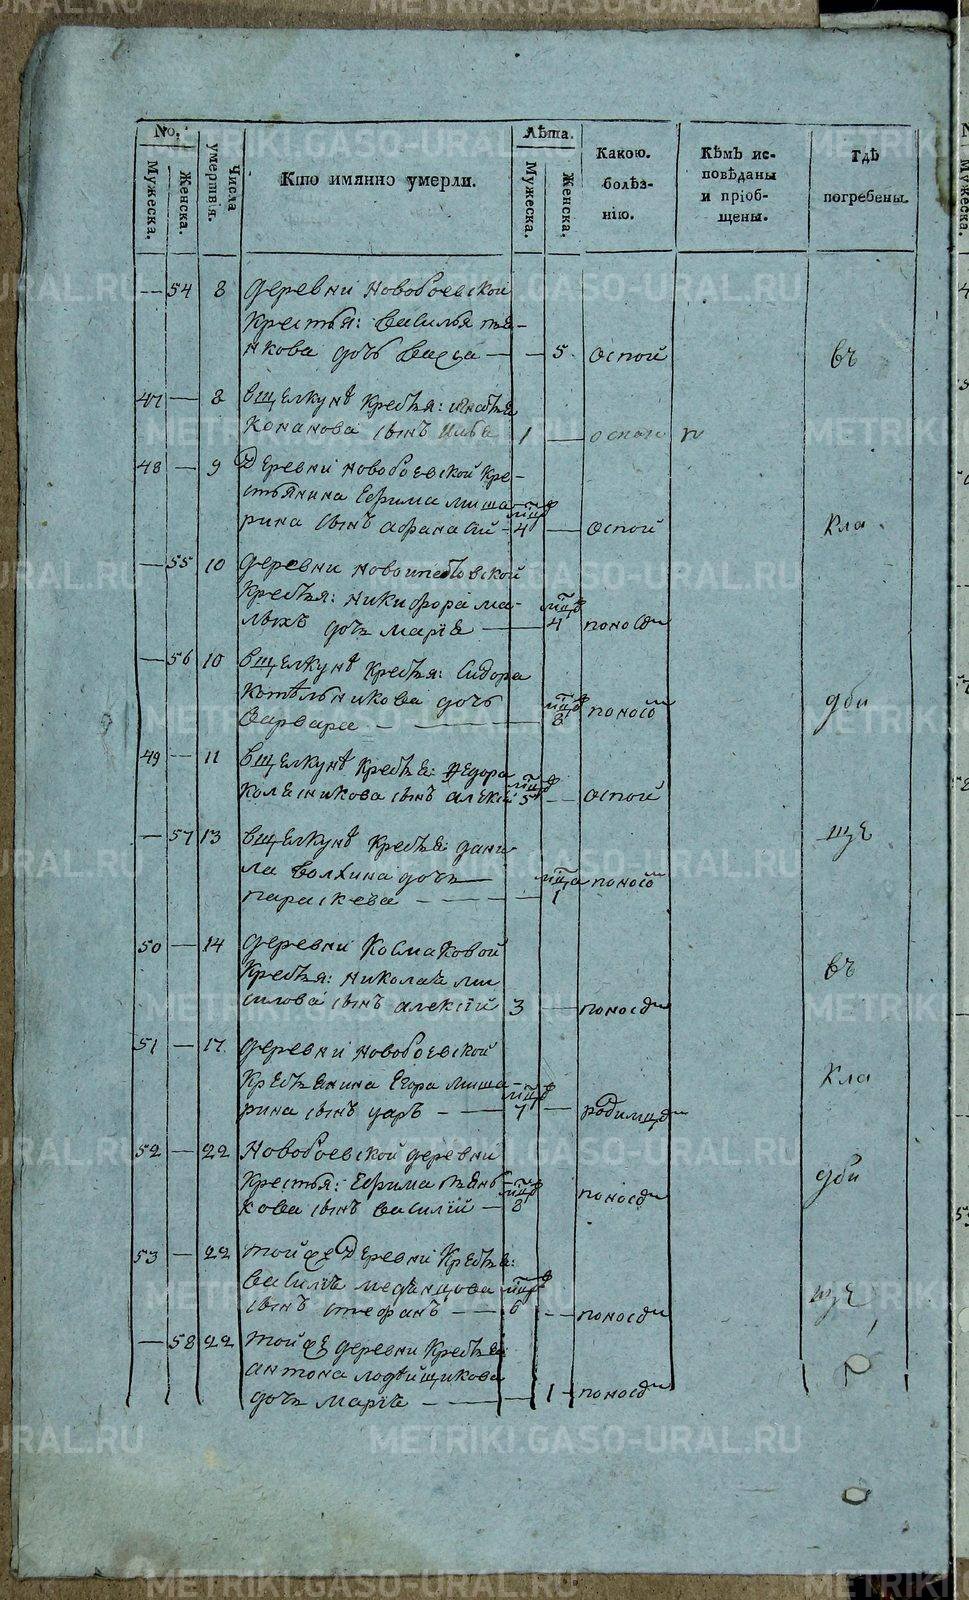 No.
Лѣта.
Мужеска.
Женска.
Числа умертвія.
Кто имянно умерли.
Мужеска.
Женска.
Какою. болѣз-нію.
Кѣмъ ис-повѣданы и пріоб-щены.
Гдѣ погребены.
— 54 8 деревни Новобоевской
Крестья: Василья
нкова дочь — — 5. оспой въ
47 — 8 вщелкунѣ Крестья:
Конанова сынъ Илья 1 — оспой
48 — 9 Деревни новобоевской Кре-
стьянина Ефима миша-
рина сынъ афанасий — мцѣ 4 — оспой кла
— 55 10 деревни новоипатовской
Крестья: никифора ма-
лыхъ дочь марія — мцѣ 4 поносом
— 56 10 вщелкунѣ Крестья: Сидора
Котѣльникова дочь
варвара — — мцѣ 8 поносом дби
49 — 11 вщелкунѣ Крестья: Федора
Колесникова сынъ алексій мцѣ 5 — оспой
— 57 13 вщелкунѣ Крестья: дани-
ла волхина дочь
параскева — — — мца 1 поносом ще
50 — 14 деревни Космаковой
Крестья: Николая
силова сынъ алексій 3 — поносом въ
51 — 17 деревни новобоевской
Крестьянина Егора миша-
рина сынъ — мцѣ 7 — родимцом кла
52 — 22 Новобоевской деревни
Крестья: Ефима пьянь-
кова сынъ василий — мцѣ 8 поносом дби
53 — 22 той же Деревни Крестья:
василія медѣнцова
сынъ стефанъ — мцѣ 6 — поносом ще
— 58 22 той же деревни Крестья:
антона лодѣйщикова
дочь марія — — 1 — поносом
METRIKI.GASO-URAL.RU